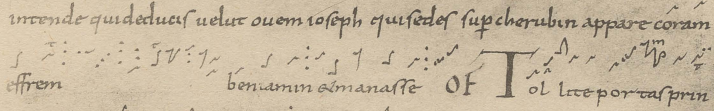 intende qui deducis uelut ouem ioseph qui sedes sup cherubin appare coram
effrem beniamin & manasse OF Tollite portas prin